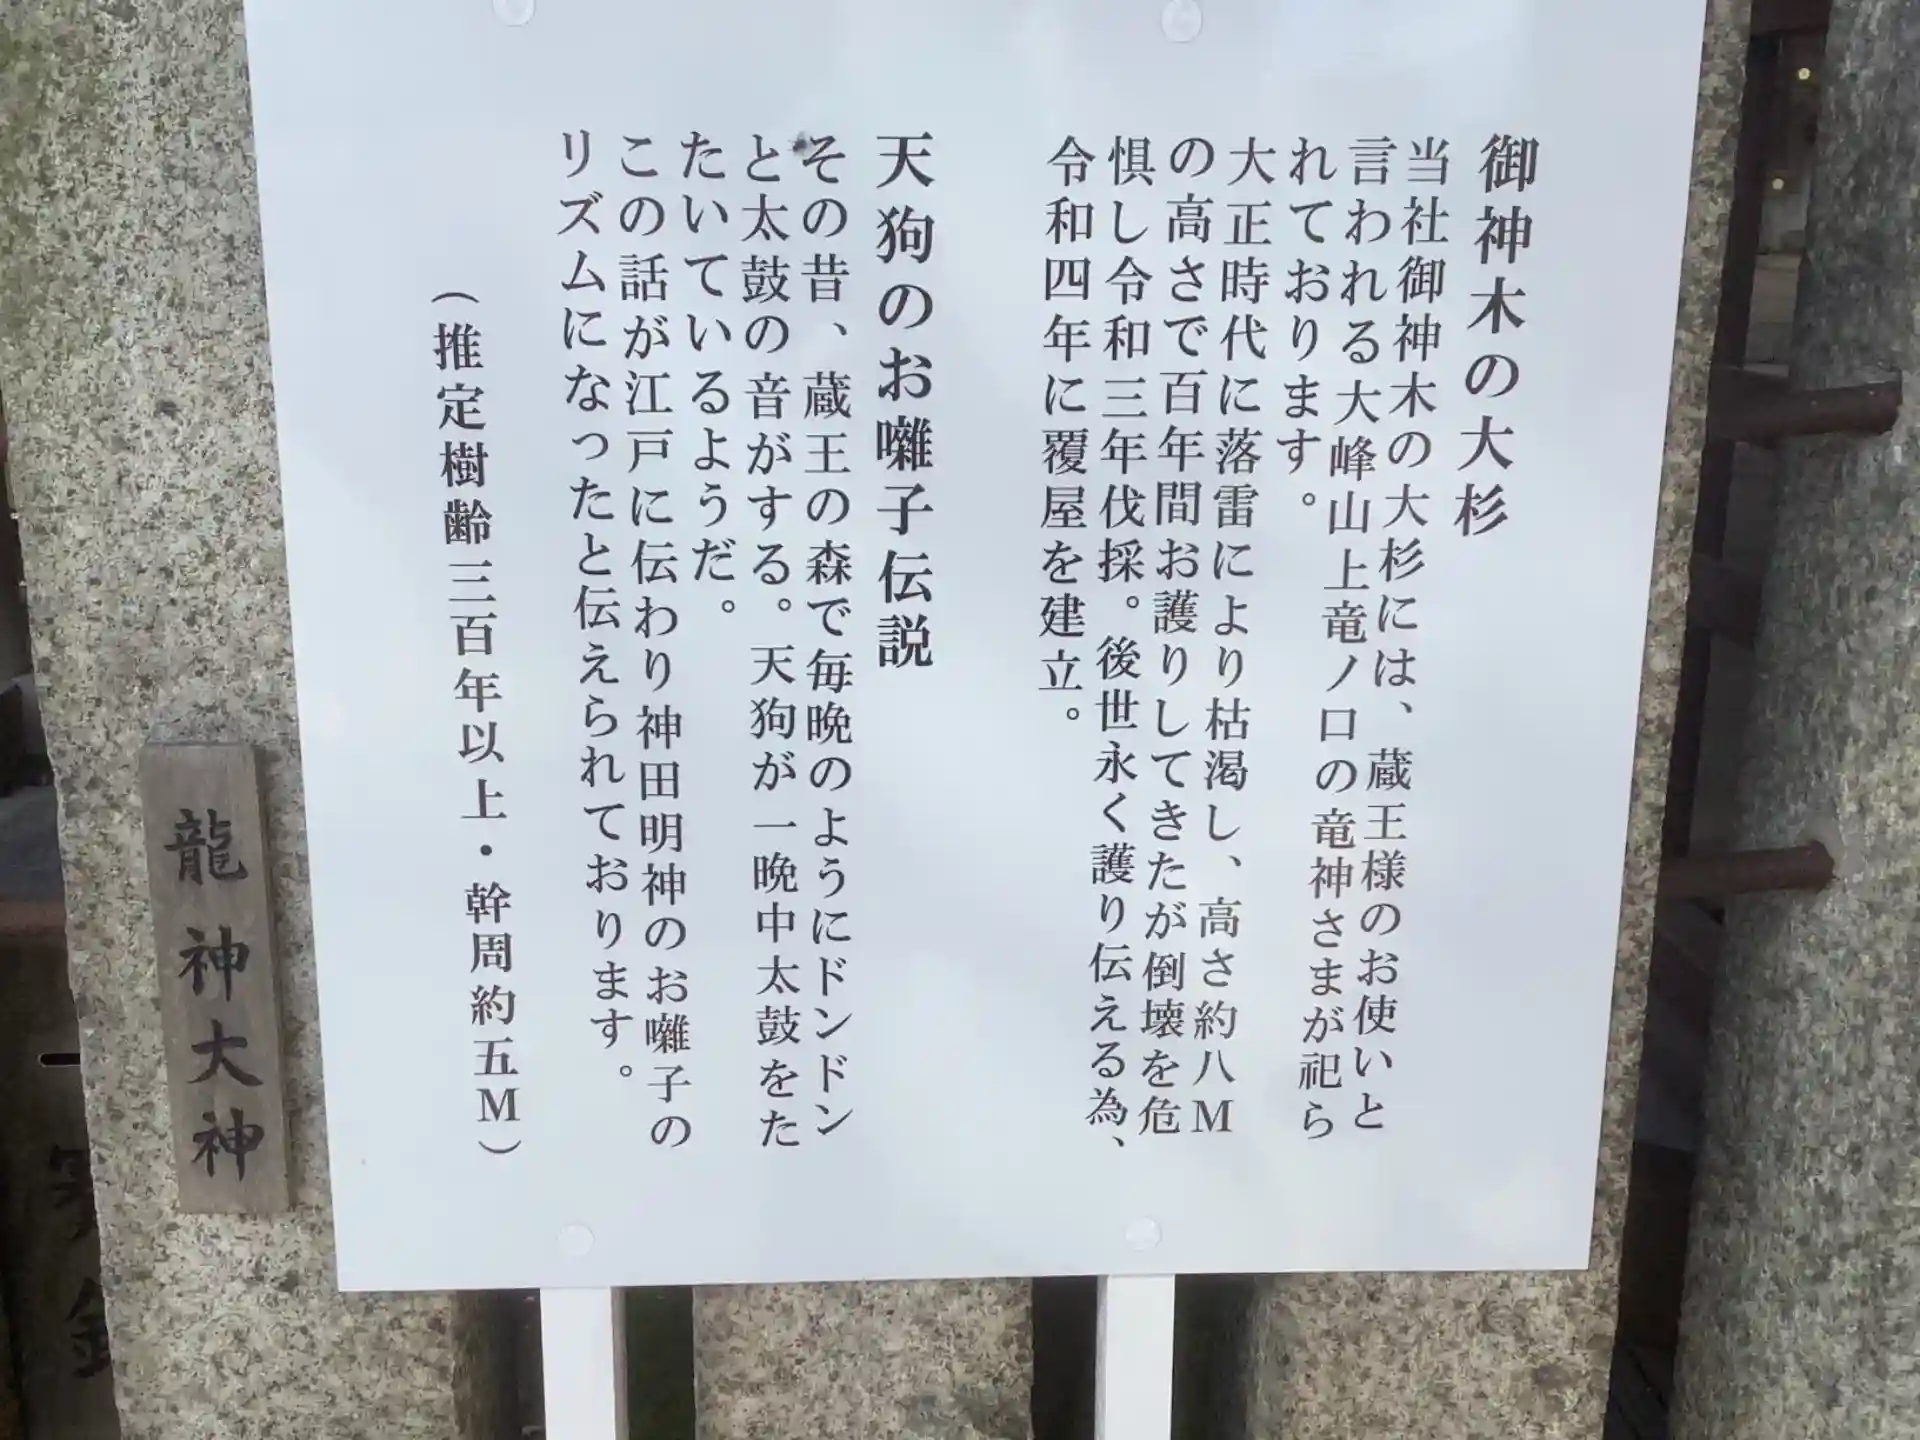 御神木の大杉
当社御神木の大杉には、蔵王様のお使いと
言われる大峰山上竜ノ口の竜神さまが祀ら
れております。
大正時代に落雷により枯渇し、高さ約八M
の高さで百年間お護りしてきたが倒壊を危
惧し令和三年伐採。後世永く護り伝える為、
令和四年に覆屋を建立。
天狗のお囃子伝説
その昔、蔵王の森で毎晩のようにドンドン
と太鼓の音がする。天狗が一晩中太鼓をた
たいているようだ。
この話が江戸に伝わり神田明神のお囃子の
リズムになったと伝えられております。
(推定樹齢三百年以上・幹周約五M)
龍神大神